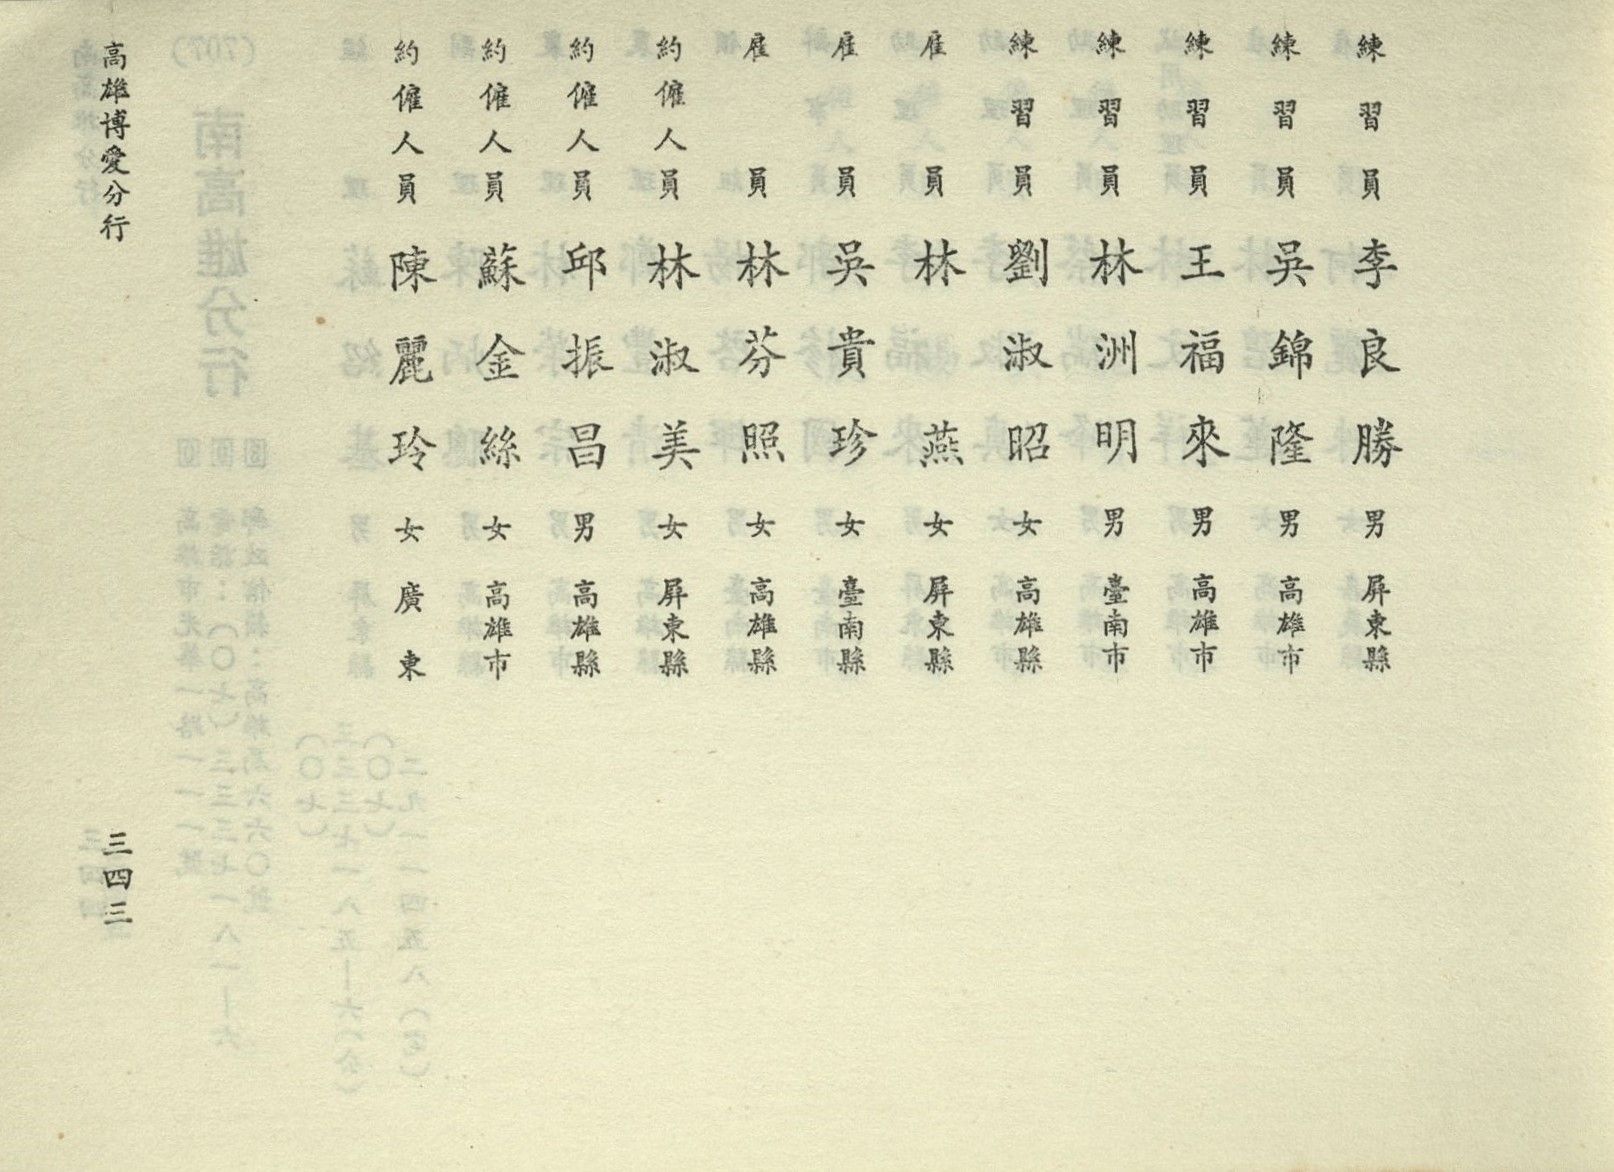 練習員 李良勝 男 屏東縣
練習員 吳錦隆 男 高雄市
練習員 王福來 男 高雄市
練習員 林洲明 男 臺南市
練習員 劉淑昭 女 高雄縣
雇員 林燕 女 屏東縣
雇員 吳貴珍 女 臺南縣
雇員 林芬照 女 高雄縣
約僱人員 林淑美 女 屏東縣
約僱人員 邱振昌 男 高雄縣
約僱人員 蘇金絲 女 高雄市
約僱人員 陳麗玲 女 廣東
高雄博愛分行
三四三